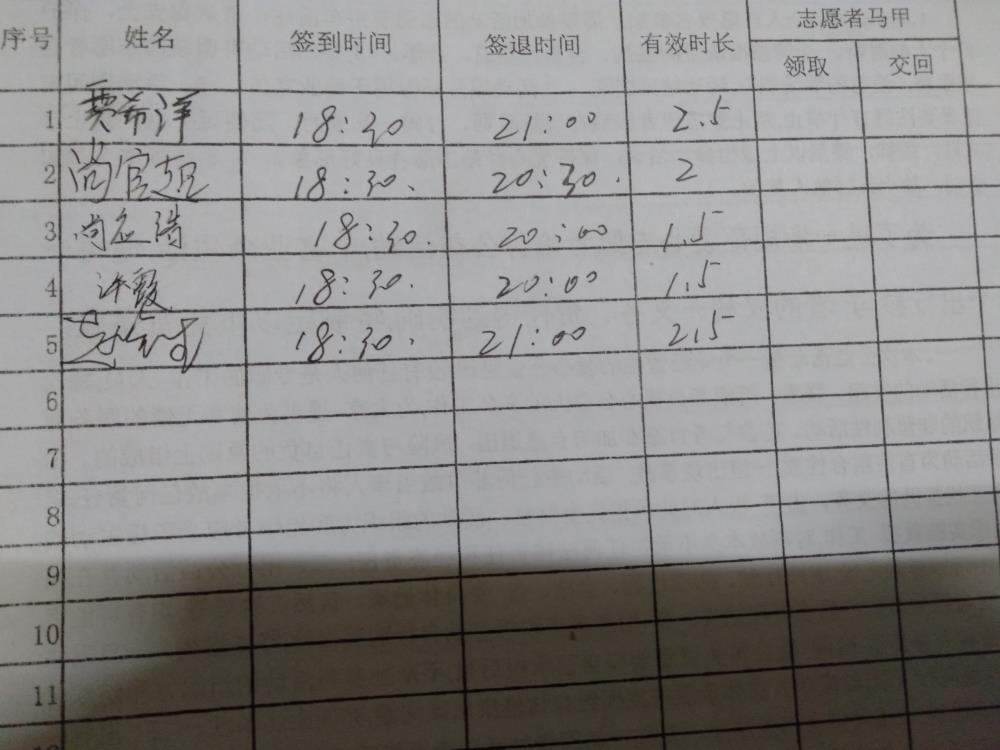 序号 姓名 签到时间 签退时间 有效时长 志愿者马甲
领取 交回
1 贾希洋 18:30 21:00 2.5
2 尚官超 18:30. 20:30. 2
3 尚应浩 18:30. 20:00 1.5
4 许毅 18:30. 20:00 1.5
5 18:30. 21:00 2.5
6
7
8
9
10
11